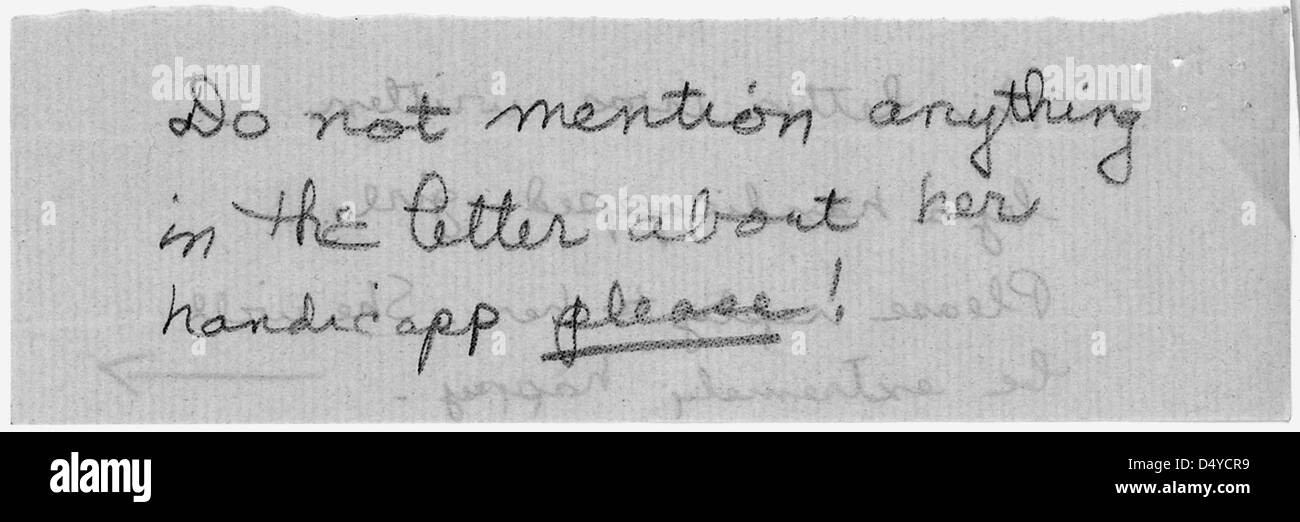 Do not mention anything
in the letter about her
handicapp please!
alamy
Image ID: D4YCR9
www.alamy.com